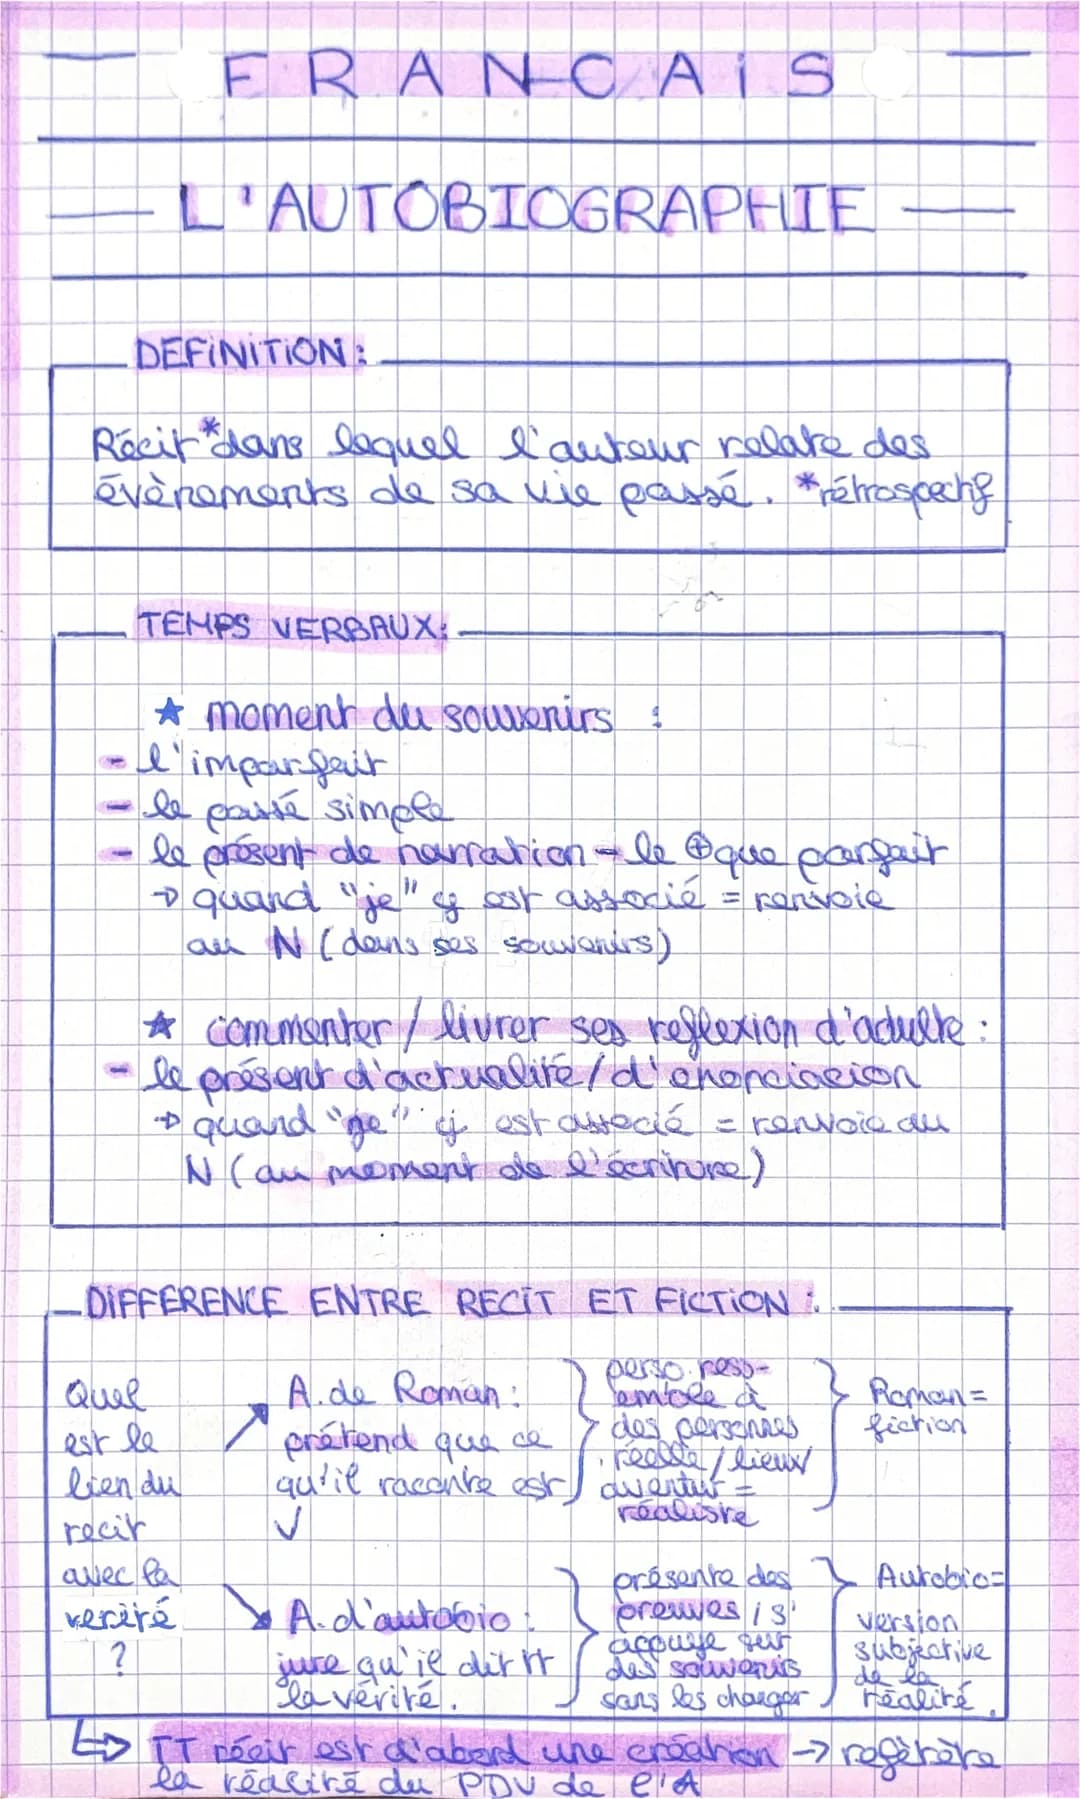 FRANCAiS
L'AUTOBIOGRAPHIE
DEFiNiTiON :
Récit* dans lequel l'auteur relate des
évènements de sa vie passé. *rétrospectif
TEMPS VERBAUX :
★ moment du souvenirs :
- l'imparfait
- le passé simple
- le présent de narration - le ⊕ que parfait
→ quand "je" y est associé = renvoie
au N (dans ses souvenirs)
★ commenter / livrer ses reflexion d'adulte :
- le présent d'actualité / d'énonciacion
→ quand "je" y est associé = renvoie du
N (au moment de l'écriture)
DiFFERENCE ENTRE RECiT ET FiCTiON :
Quel
est le
lien du
recit
avec la
verité
?
A. de Roman :
prétend que ce
qu'il raconte est
✓
perso. ress-
emble à
des personnes
réelle / lieux
aventur =
réaliste
Roman =
fiction
A. d'autobio :
jure qu'il dit tt
la vérité.
présente des
preuves / s'
appuye sur
des souvenirs
sans les changer
Autobio =
version
subjective
de la
réalité.
↳ TT récit est d'abord une création → refètère
la réalité du PDV de l'A